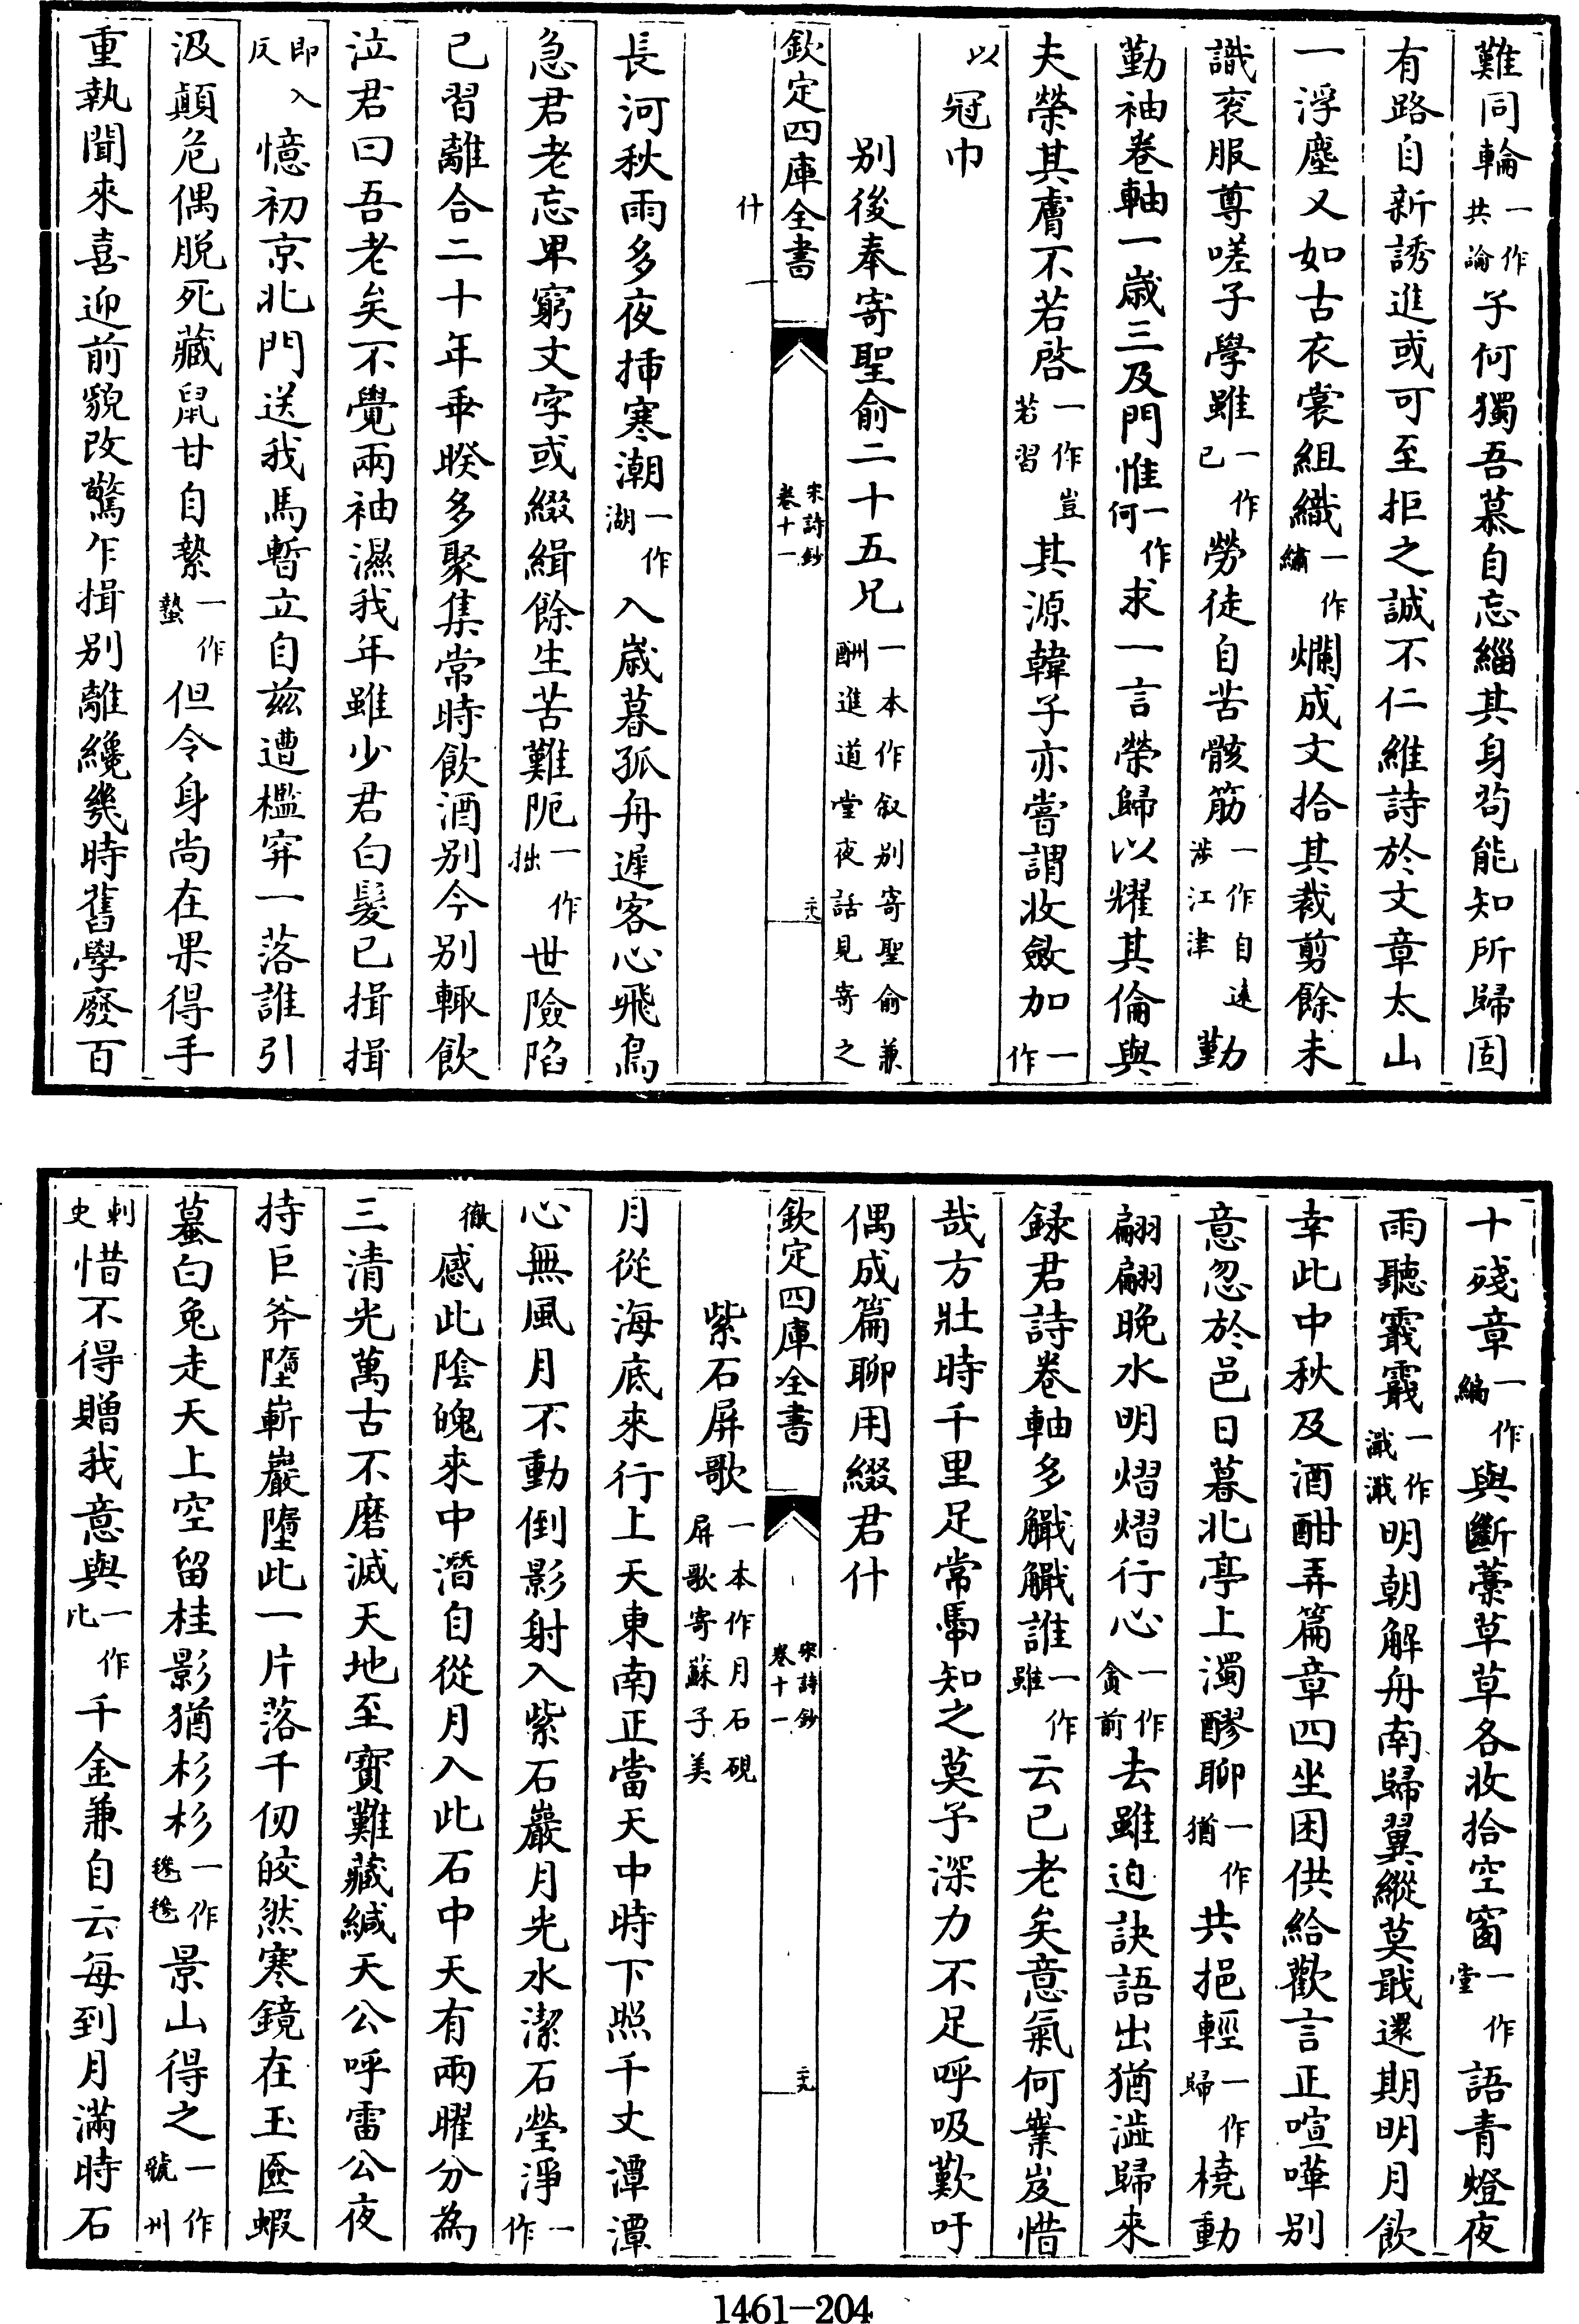 難同輪一作共論子何獨吾慕自忘緇其身茍能知所歸固
有路自新誘進或可至拒之誠不仁維詩於文章太山
一浮塵又如古衣裳組織一作繡爛成文拾其裁剪餘未
識衮服尊嗟子學雖一作已勞徒自苦骸筋一作自遠涉江津勤
勤袖卷軸一嵗三及門惟一作何求一言榮歸以耀其倫與
夫榮其膚不若啓一作若習豈其源韓子亦嘗謂收斂加一作
以冠巾
别後奉寄聖俞二十五兄一本作叙别寄聖俞兼酬進道堂夜話見寄之
什一
欽定四庫全書
宋詩鈔
卷十一
長河秋雨多夜插寒潮一作湖入嵗暮孤舟遲客心飛鳥
急君老忘卑窮文字或綴緝餘生苦難阨一作拙世險陷
已習離合二十年乖暌多聚集常時飲酒别今别輒飲
泣君曰吾老矣不覺兩袖濕我年雖少君白髮已揖揖
即入反憶初京北門送我馬暫立自兹遭檻穽一落誰引
汲顛危偶脱死藏鼠甘自縶一作蟄但令身尚在果得手
重執聞來喜迎前貌改驚乍揖别離纔幾時舊學廢百
十殘章一作編與斷藁草草各收拾空窗一作堂語青燈夜
雨聽霢霢一作濈濈明朝解舟南歸翼縱莫戢還期明月飲
幸此中秋及酒酣弄篇章四坐困供給歡言正喧嘩别
意忽於邑日暮北亭上濁醪聊一作猶共挹輕一作歸橈動
翩翩晚水明熠熠行心一作貪前去雖迫訣語出猶澁歸來
録君詩卷軸多觿觿誰一作雖云已老矣意氣何嶪岌惜
哉方壯時千里足常馽知之莫予深力不足呼吸歎吁
偶成篇聊用綴君什
欽定四庫全書
宋詩鈔
卷十一
紫石屏歌一本作月石硯屏歌寄蘇子美
月從海底來行上天東南正當天中時下照千丈潭潭
心無風月不動倒影射入紫石巖月光水潔石瑩淨一作
徹感此陰魄來中潛自從月入此石中天有兩曜分為
三清光萬古不磨滅天地至寳難藏緘天公呼雷公夜
持巨斧隳嶄巖墮此一片落千仞皎然寒鏡在玉匳蝦
蟇白兔走天上空留桂影猶杉杉一作毿毿景山得之一作號州
刺史惜不得贈我意與一作比千金兼自云每到月滿時石
1461—204